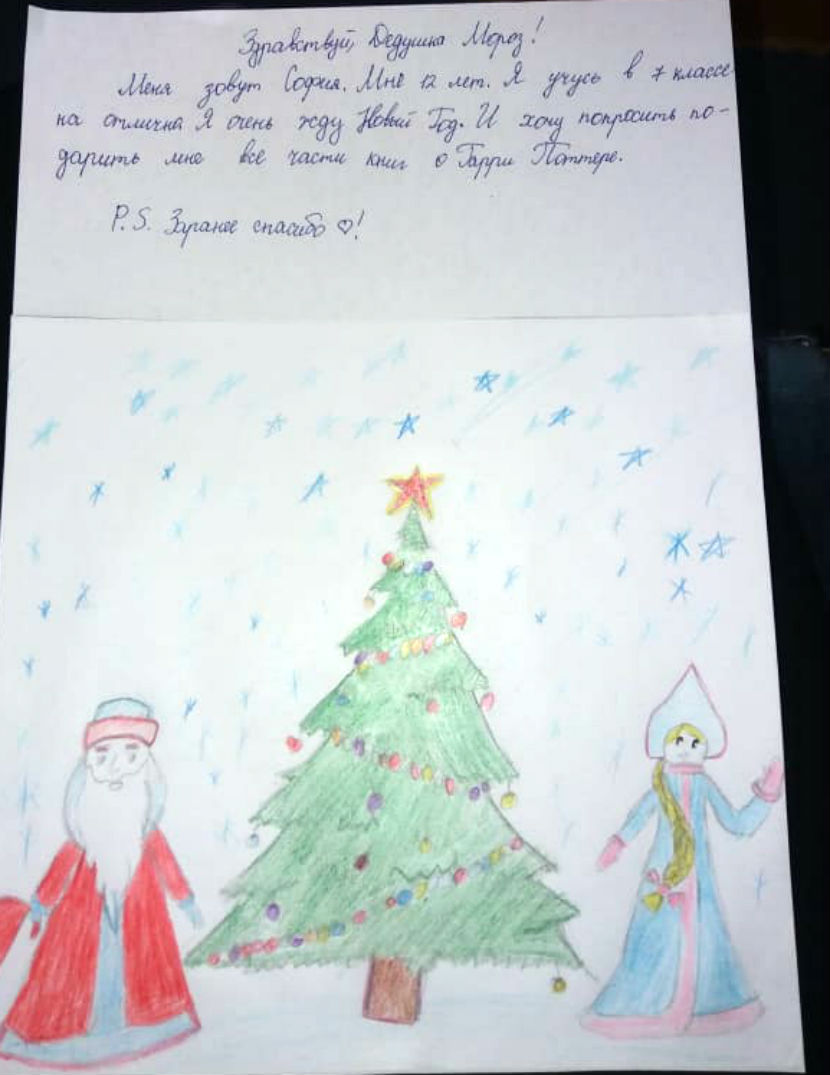 Здравствуй, Дедушка Мороз!
Меня зовут София. Мне 12 лет. Я учусь в 7 классе
на отлична Я очень жду Новый Год. И хочу попросить по-
дарить мне все части книг о Гарри Поттере.
P.S. Заранее спасибо ♡!